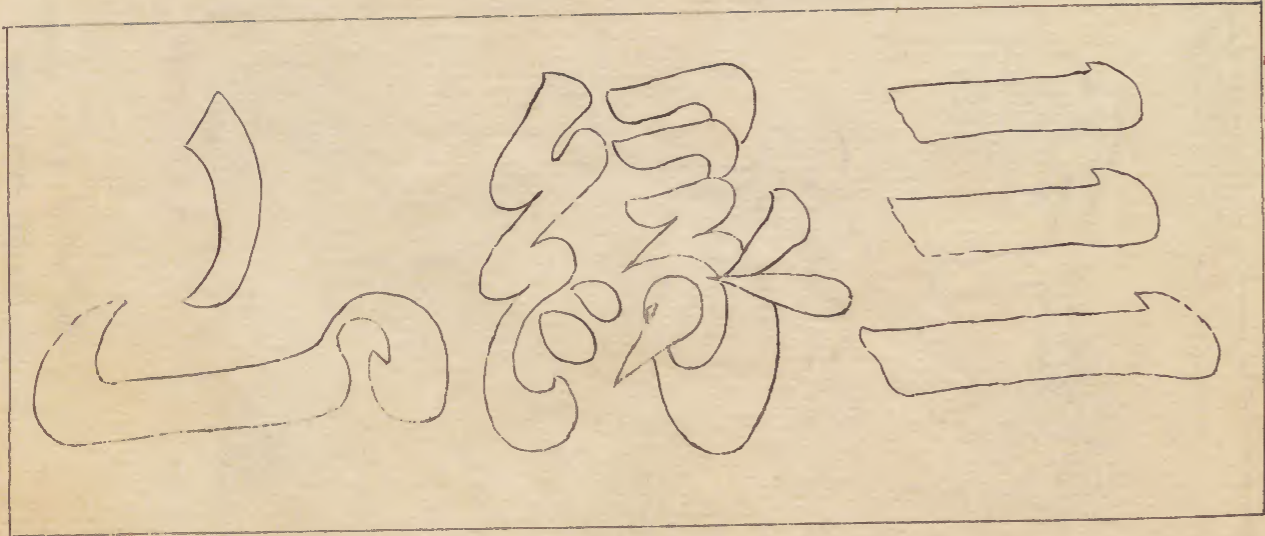 三縁山